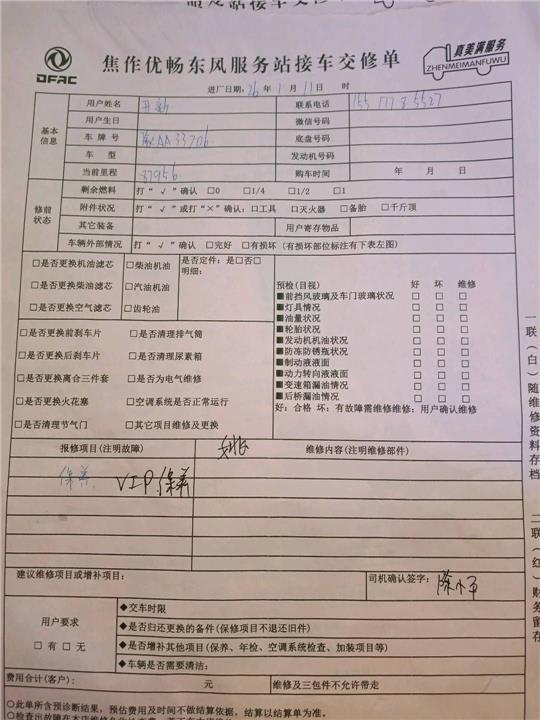 DFAC
焦作优畅东风服务站接车交修单
真美满服务
ZHENMEIMANFUWU
进厂日期：26 年 1 月 11 日 时
基本信息
用户姓名
联系电话
用户生日
微信号码
车牌号
底盘号码
车型
发动机号码
当前里程 37956 购车时间 年 月 日
修前状态
剩余燃料 打“√”确认 □0 □1/4 □1/2 □1
附件状况 打“√”或打“×”确认：□工具 □灭火器 □备胎 □千斤顶
其它装备 用户寄存物品
车辆外部情况 打“√”确认 □完好 □有损坏（有损坏部位标注有下表左图）
□是否更换机油滤芯 □柴油机油 是否定件：是□否□
明细：
□是否更换柴油滤芯 □汽油机油
□是否更换空气滤芯 □齿轮油
预检（目视） 好 坏 维修
■前挡风玻璃及车门玻璃状况 □ □ □
■灯具情况 □ □ □
■油量状况 □ □ □
■轮胎状况 □ □ □
■发动机机油状况 □ □ □
■防冻防锈瓶状况 □ □ □
■制动液液面 □ □ □
■动力转向液液面 □ □ □
■变速箱漏油情况 □ □ □
■后桥漏油情况 □ □ □
好：合格 坏：有故障需维修维修：用户确认维修
□是否更换前刹车片 □是否清理排气筒
□是否更换后刹车片 □是否清理尿素箱
□是否更换离合三件套 □是否为电气维修
□是否更换火花塞 □空调系统是否正常运行
□是否清理节气门 □其它项目维修及更换
报修项目（注明故障） 维修内容（注明维修部件）
保养 VIP.保养
建议维修项目或增补项目：
司机确认签字：
用户要求
□有 □无
◆交车时限
◆是否归还更换的备件（保修项目不退还旧件）
◆是否增补其他项目（保养、年检、空调系统检查、加装项目等）
◆车辆是否需要清洁：
费用合计（客户）： 元 维修及三包件不允许带走
○此单所含预诊断结果，预估费用及时间不做结算依据，结算以结算单为准。
一联（白）随维修资料存档
二联（红）财务留存